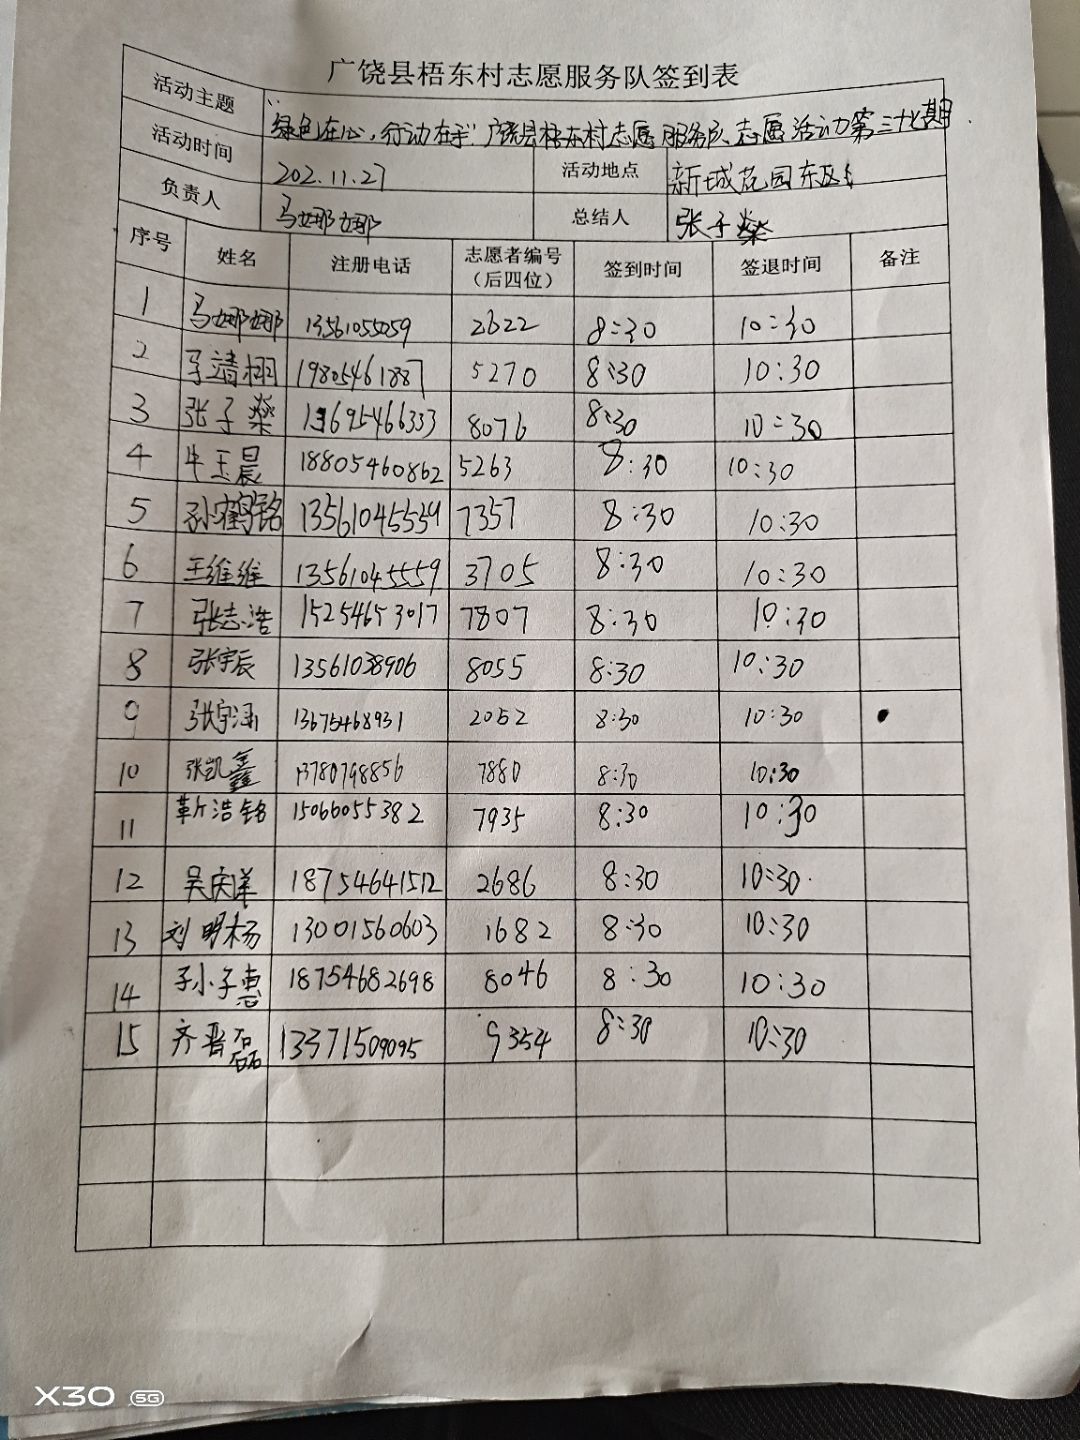 广饶县梧东村志愿服务队签到表
活动主题 “绿色在心,行动在手”广饶县梧东村志愿服务队志愿活动第三十七期
活动时间 202.11.27 活动地点 新城花园东区
负责人 马娜娜 总结人 张子燊
序号 姓名 注册电话 志愿者编号(后四位) 签到时间 签退时间 备注
1 马娜娜 13561055059 2622 8:30 10:30
2 马靖栩 19805461887 5270 8:30 10:30
3 张子燊 13695466333 8076 8:30 10:30
4 牛玉晨 18805460862 5263 8:30 10:30
5 孙鹤铭 13561045559 7357 8:30 10:30
6 王维维 13561045559 3705 8:30 10:30
7 张志浩 15254653017 7807 8:30 10:30
8 张宇辰 13561038906 8055 8:30 10:30
9 张宇涵 13675468931 2052 8:30 10:30
10 张凯鑫 13780798856 7880 8:30 10:30
11 靳浩铭 15066055382 7935 8:30 10:30
12 吴庆洋 18754641512 2686 8:30 10:30
13 刘明杨 13001560603 1682 8:30 10:30
14 孙子惠 18754682698 8046 8:30 10:30
15 齐晋磊 13371509095 9354 8:30 10:30
X30 5G